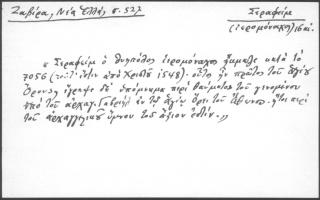 Ζαβίρα, Νέα Ἑλλάς, σ. 527
Σεραφείμ
(ἱερομόναχος) 16 αἰ.
« Σεραφείμ ὁ θυηπόλος ἱερομόναχος ἤκμαζε κατά τό
7056 (τοῦτ' ἔστιν ἀπό Χριστοῦ 1548). οὗτος ἦν πρῶτος τοῦ ἁγίου
Ὄρους, ἔγραψε δέ ὑπόμνημα περί θαύματος τοῦ γενομένου
ὑπό τοῦ ἀρχαγ. Γαβριήλ ἐν τῷ ἁγίῳ ὄρει τοῦ Ἄθωνος, ἤτοι περί
τοῦ ἀρχαγγελικοῦ ὕμνου τοῦ ἄξιον ἐστίν. »